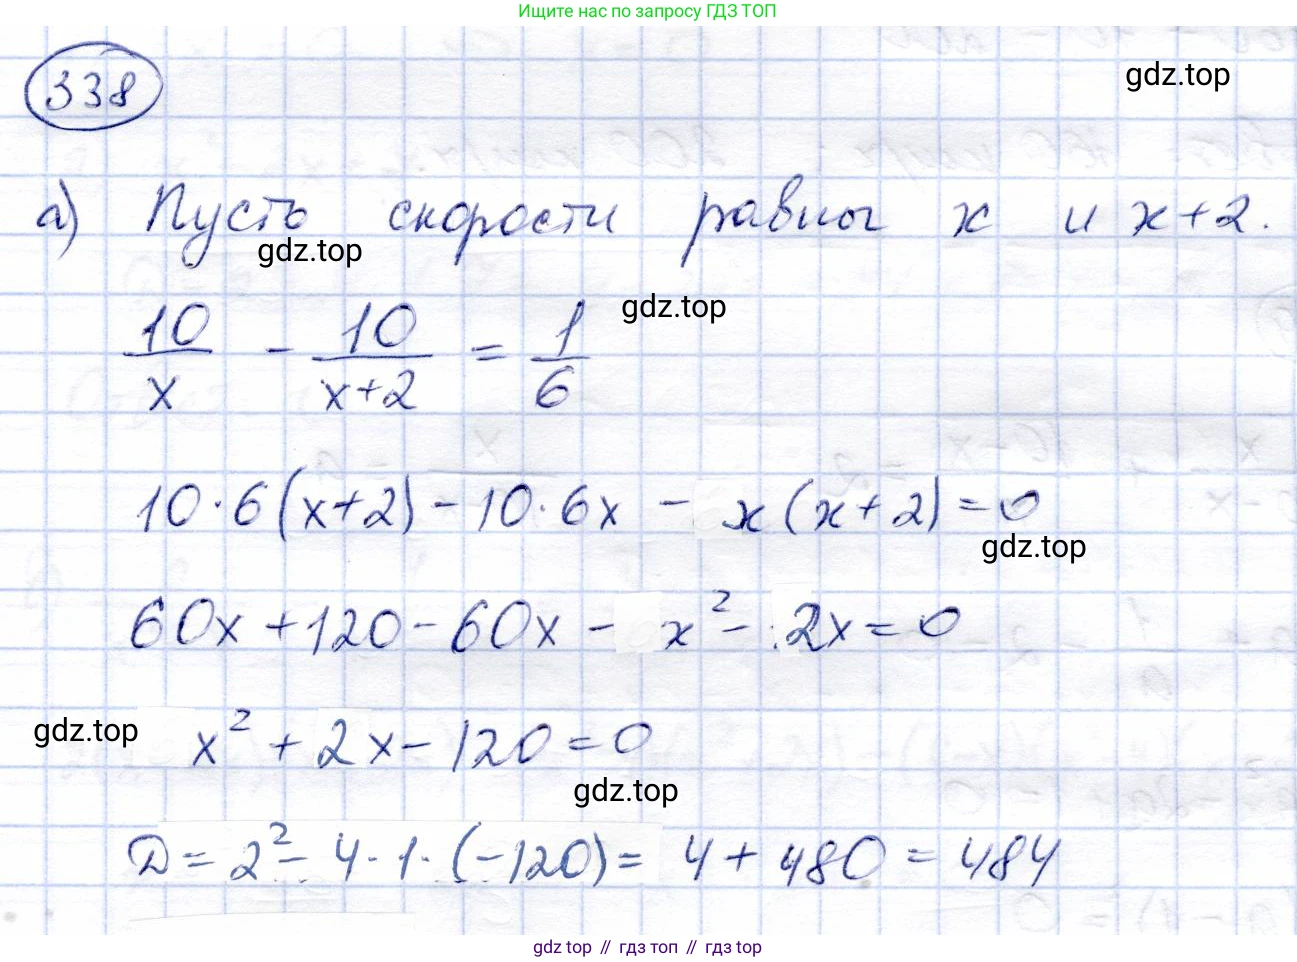 Ищите нас по запросу ГДЗ ТОП
338
gdz.top
а) Пусть скорости равны x и x+2.
gdz.top
gdz.top
10/x - 10/(x+2) = 1/6
10·6(x+2) - 10·6x - x(x+2) = 0
gdz.top
60x + 120 - 60x - x² - 2x = 0
gdz.top
x² + 2x - 120 = 0
gdz.top
D = 2² - 4·1·(-120) = 4 + 480 = 484
gdz top // гдз топ // гдз top